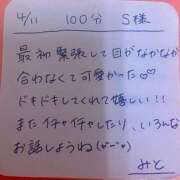 4/11 100分 S様
最初緊張して目がなかなか
合わなくて可愛かった♡
ドキドキしてくれて嬉しい!!
またイチャイチャしたり、いろんな
お話しようね(*ˊᵕˋ*)
みと